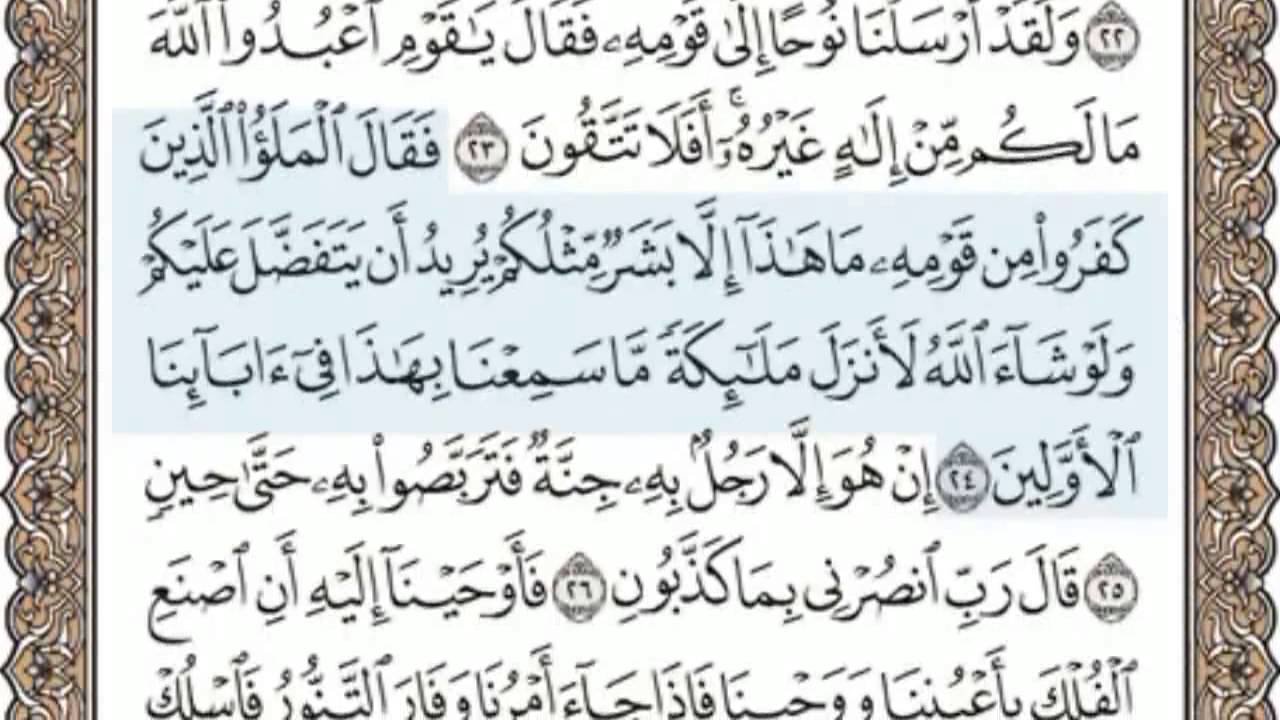 ٢٢ وَلَقَدْ أَرْسَلْنَا نُوحًا إِلَىٰ قَوْمِهِۦ فَقَالَ يَٰقَوْمِ ٱعْبُدُوا۟ ٱللَّهَ
مَا لَكُم مِّنْ إِلَٰهٍ غَيْرُهُۥٓ ۚ أَفَلَا تَتَّقُونَ ٢٣ فَقَالَ ٱلْمَلَؤُا۟ ٱلَّذِينَ
كَفَرُوا۟ مِن قَوْمِهِۦ مَا هَٰذَآ إِلَّا بَشَرٌ مِّثْلُكُمْ يُرِيدُ أَن يَتَفَضَّلَ عَلَيْكُمْ
وَلَوْ شَآءَ ٱللَّهُ لَأَنزَلَ مَلَٰٓئِكَةً مَّا سَمِعْنَا بِهَٰذَا فِىٓ ءَابَآئِنَا
ٱلْأَوَّلِينَ ٢٤ إِنْ هُوَ إِلَّا رَجُلٌۢ بِهِۦ جِنَّةٌ فَتَرَبَّصُوا۟ بِهِۦ حَتَّىٰ حِينٍ
٢٥ قَالَ رَبِّ ٱنصُرْنِى بِمَا كَذَّبُونِ ٢٦ فَأَوْحَيْنَآ إِلَيْهِ أَنِ ٱصْنَعِ
ٱلْفُلْكَ بِأَعْيُنِنَا وَوَحْيِنَا فَإِذَا جَآءَ أَمْرُنَا وَفَارَ ٱلتَّنُّورُ فَٱسْلُكْ